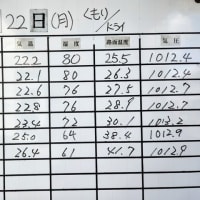 22日(月) くもり/KSY
気温 湿度 路面温度 気圧
22.2 80 25.5 1012.4
22.1 80 26.3 1012.4
22.6 76 27.5 1012.7
22.8 76 28.9 1012.7
23.4 72 30.1 1013.2
25.0 64 38.4 1012.9
26.4 61 41.7 1012.9